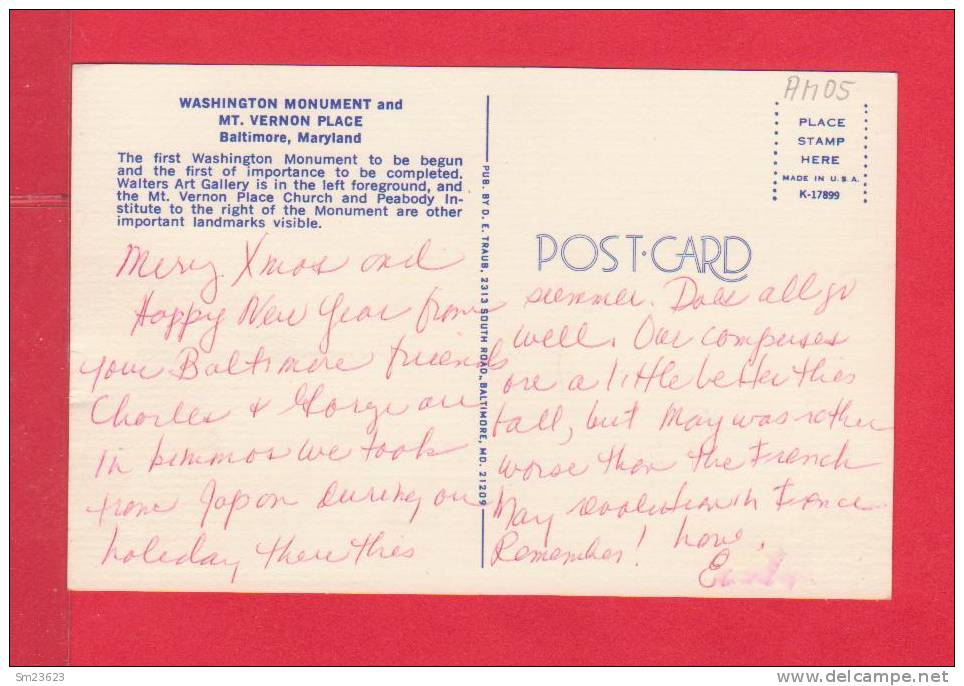 WASHINGTON MONUMENT and
MT. VERNON PLACE
Baltimore, Maryland
The first Washington Monument to be begun
and the first of importance to be completed.
Walters Art Gallery is in the left foreground, and
the Mt. Vernon Place Church and Peabody In-
stitute to the right of the Monument are other
important landmarks visible.
Merry Xmas and
Happy New Year from
your Baltimore friends
Charles & George are
in kimmos we took
from Japan during our
holiday there this
PUB. BY D. E. TRAUB, 2313 SOUTH ROAD, BALTIMORE, MD. 21209
AM05
PLACE
STAMP
HERE
MADE IN U.S.A.
K-17899
POST·CARD
summer. Does all go
well. Our campuses
are a little better this
fall, but May was rather
worse than the French
May revolution in France
Remember! Love,
Sm23623
www.delcampe.net